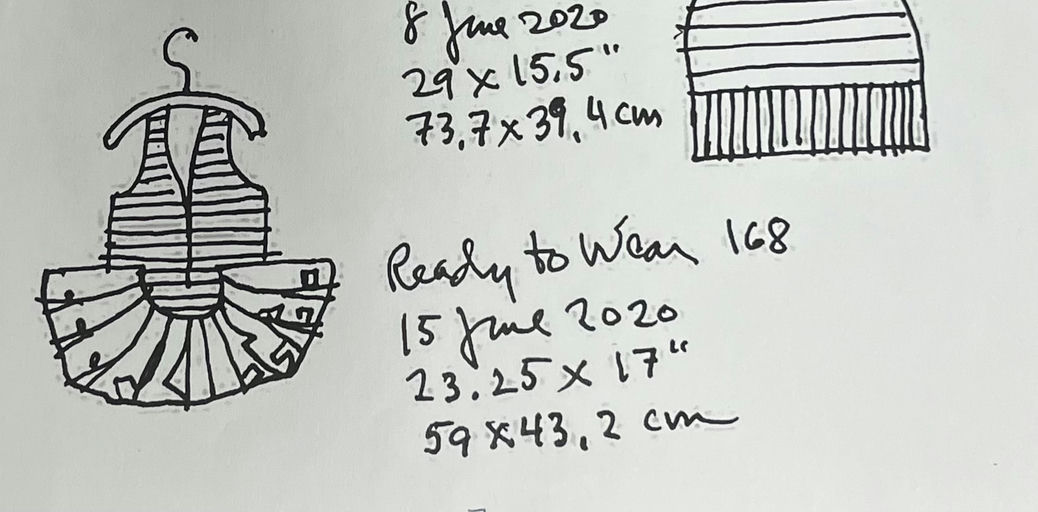 8 June 2020
29 x 15.5"
73.7 x 39.4 cm
Ready to Wear 168
15 June 2020
23.25 x 17"
59 x 43.2 cm